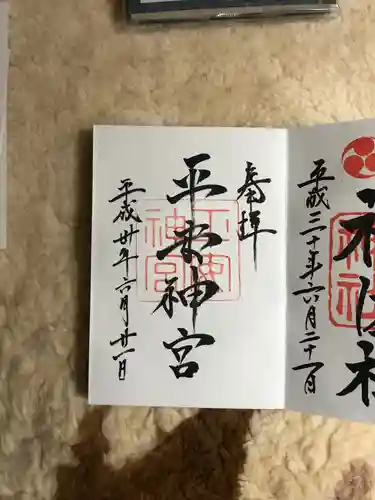 神社
平成三十年六月二十一日
奉拝
平安神宮
平安神宮
平成卅年六月廿一日